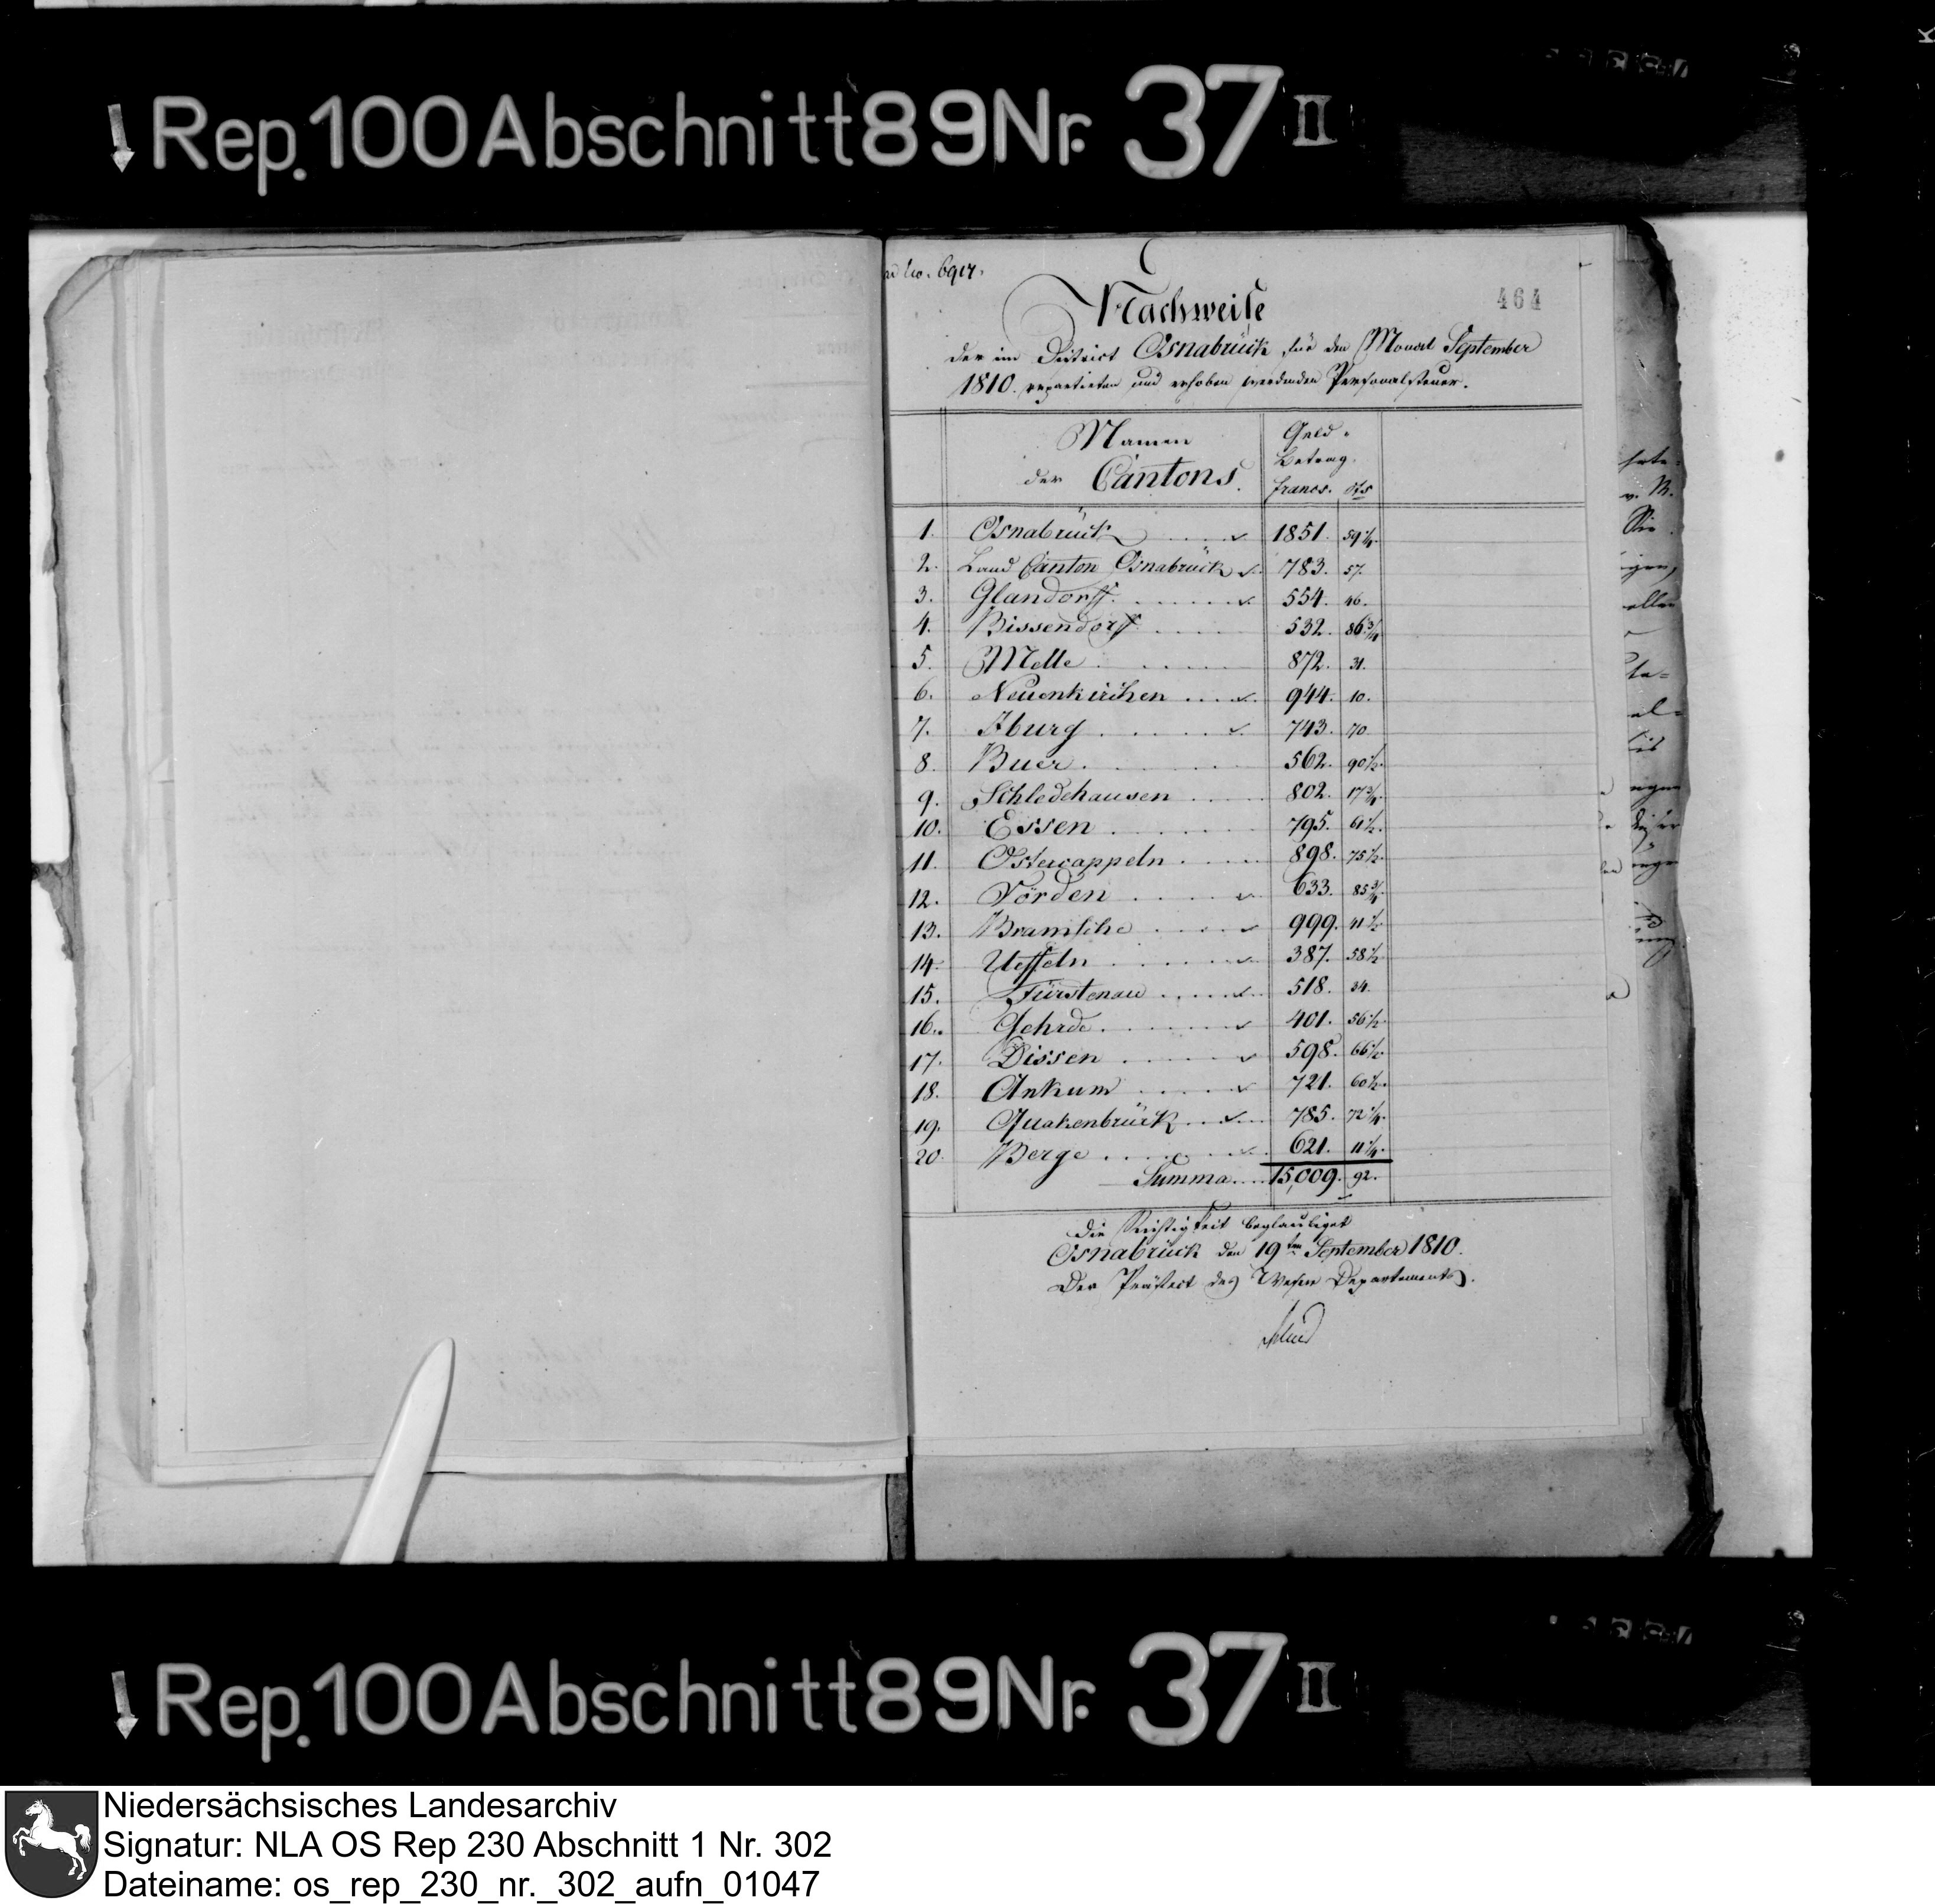 Rep. 100 Abschnitt 89 Nr. 37 II
ad No. 6917.
464
Nachweise
der im District Osnabrück für den Monat September
1810. repartirten und erhoben werdenden Personalsteuer.
Namen der Cantons. Geld-Betrag. francs. cts
1. Osnabrück 1851. 59 1/4.
2. Land Canton Osnabrück 783. 57.
3. Glandorff 554. 46.
4. Bissendorff 532. 86 3/4
5. Melle 872. 31.
6. Neuenkirchen 944. 10.
7. Iburg 743. 70
8. Buer 562. 90 1/2.
9. Schledehausen 802. 17 3/4.
10. Essen 795. 61 1/2.
11. Ostercappeln 898. 75 1/2.
12. Vörden 633. 85 3/4.
13. Bramsche 999. 41 1/2
14. Ueffeln 387. 58 1/2
15. Fürstenau 518. 34.
16. Gehrde 401. 56 1/2.
17. Dissen 598. 66 1/2.
18. Ankum 721. 60 1/2.
19. Quakenbrück 785. 72 1/4.
20. Berge 621. 11 1/4.
Summa 15,009. 92.
Die Richtigkeit beglaubiget
Osnabrück den 19ten September 1810.
Der Präfect des Weser Departements.
Rep. 100 Abschnitt 89 Nr. 37 II
Niedersächsisches Landesarchiv
Signatur: NLA OS Rep 230 Abschnitt 1 Nr. 302
Dateiname: os_rep_230_nr._302_aufn_01047